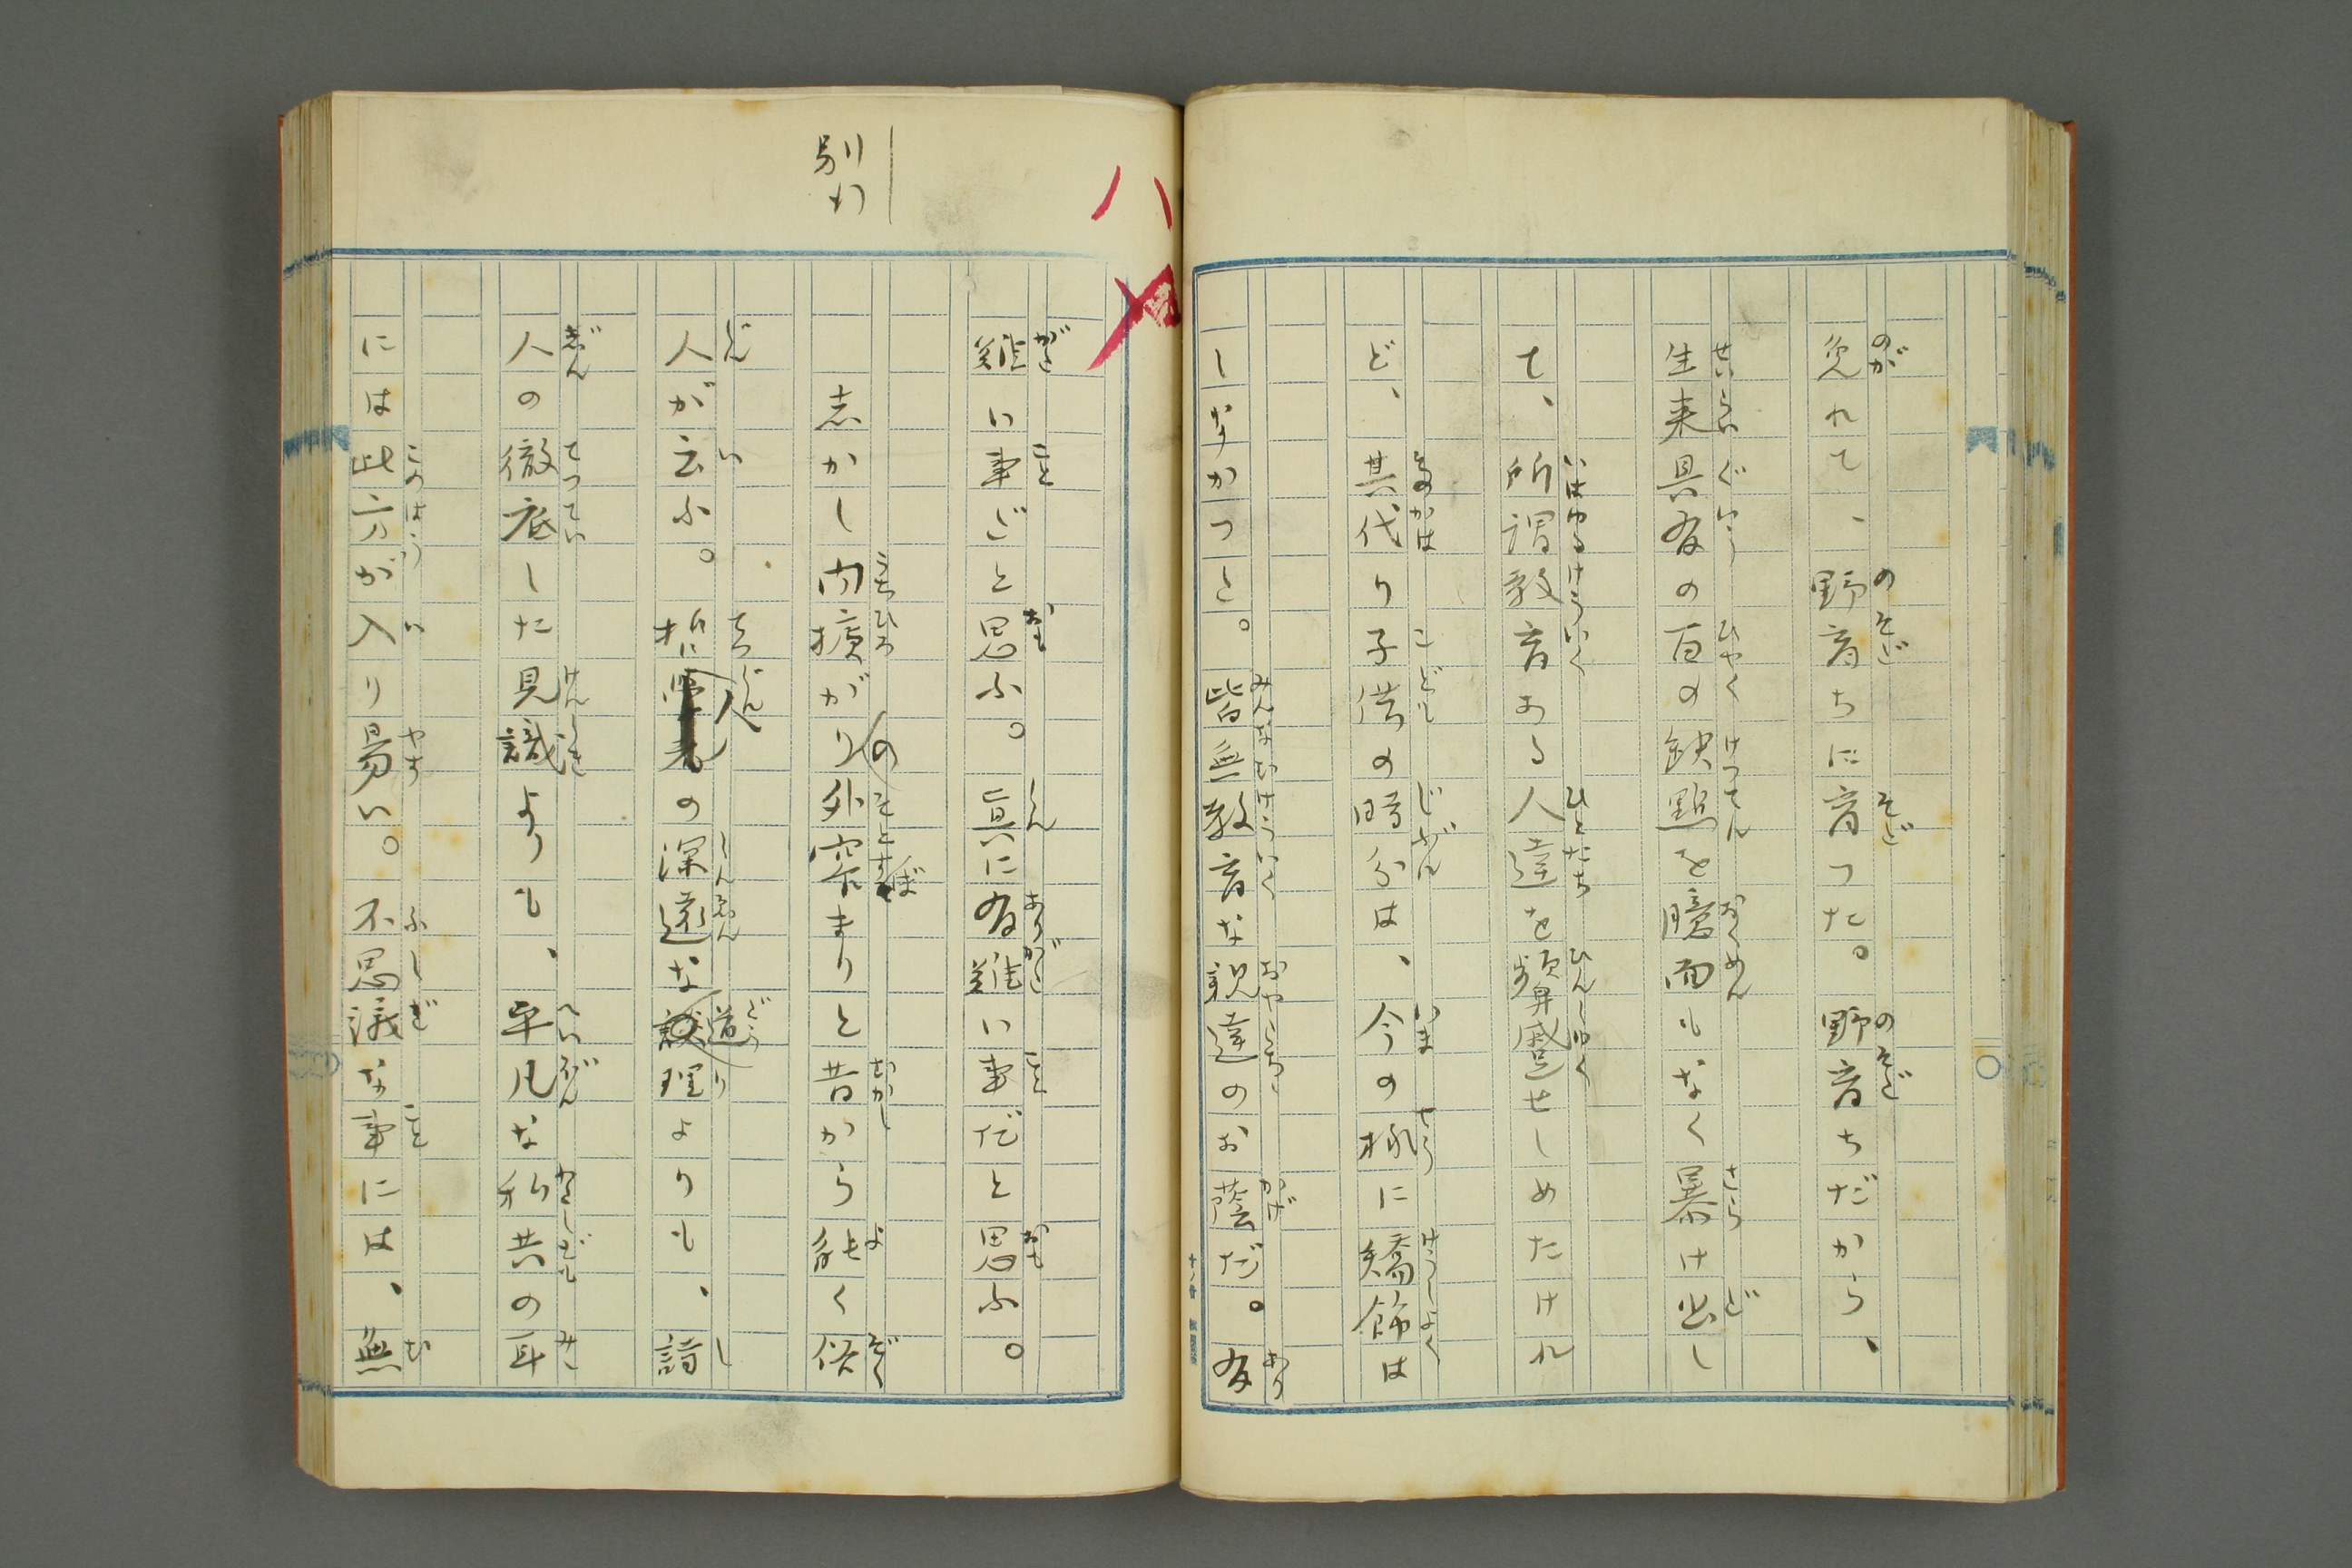 免れて、野育ちに育つた。野育ちだから、
生来具有の百の缺點を臆面もなく暴け出し
て、所謂教育ある人達を顰蹙せしめたけれ
ど、其代り子供の時分は、今の様に矯飾は
しなかつた。皆無教育な親達のお蔭だ。有
難い事だと思ふ。真に有難い事だと思ふ。
志かし内擴がりの外窄まりと昔から能く俗
人が云ふ。哲人の深遠な道理よりも、詩
人の徹底した見識よりも、平凡な私共の耳
には此方が入り易い。不思議な事には、無
別行
八